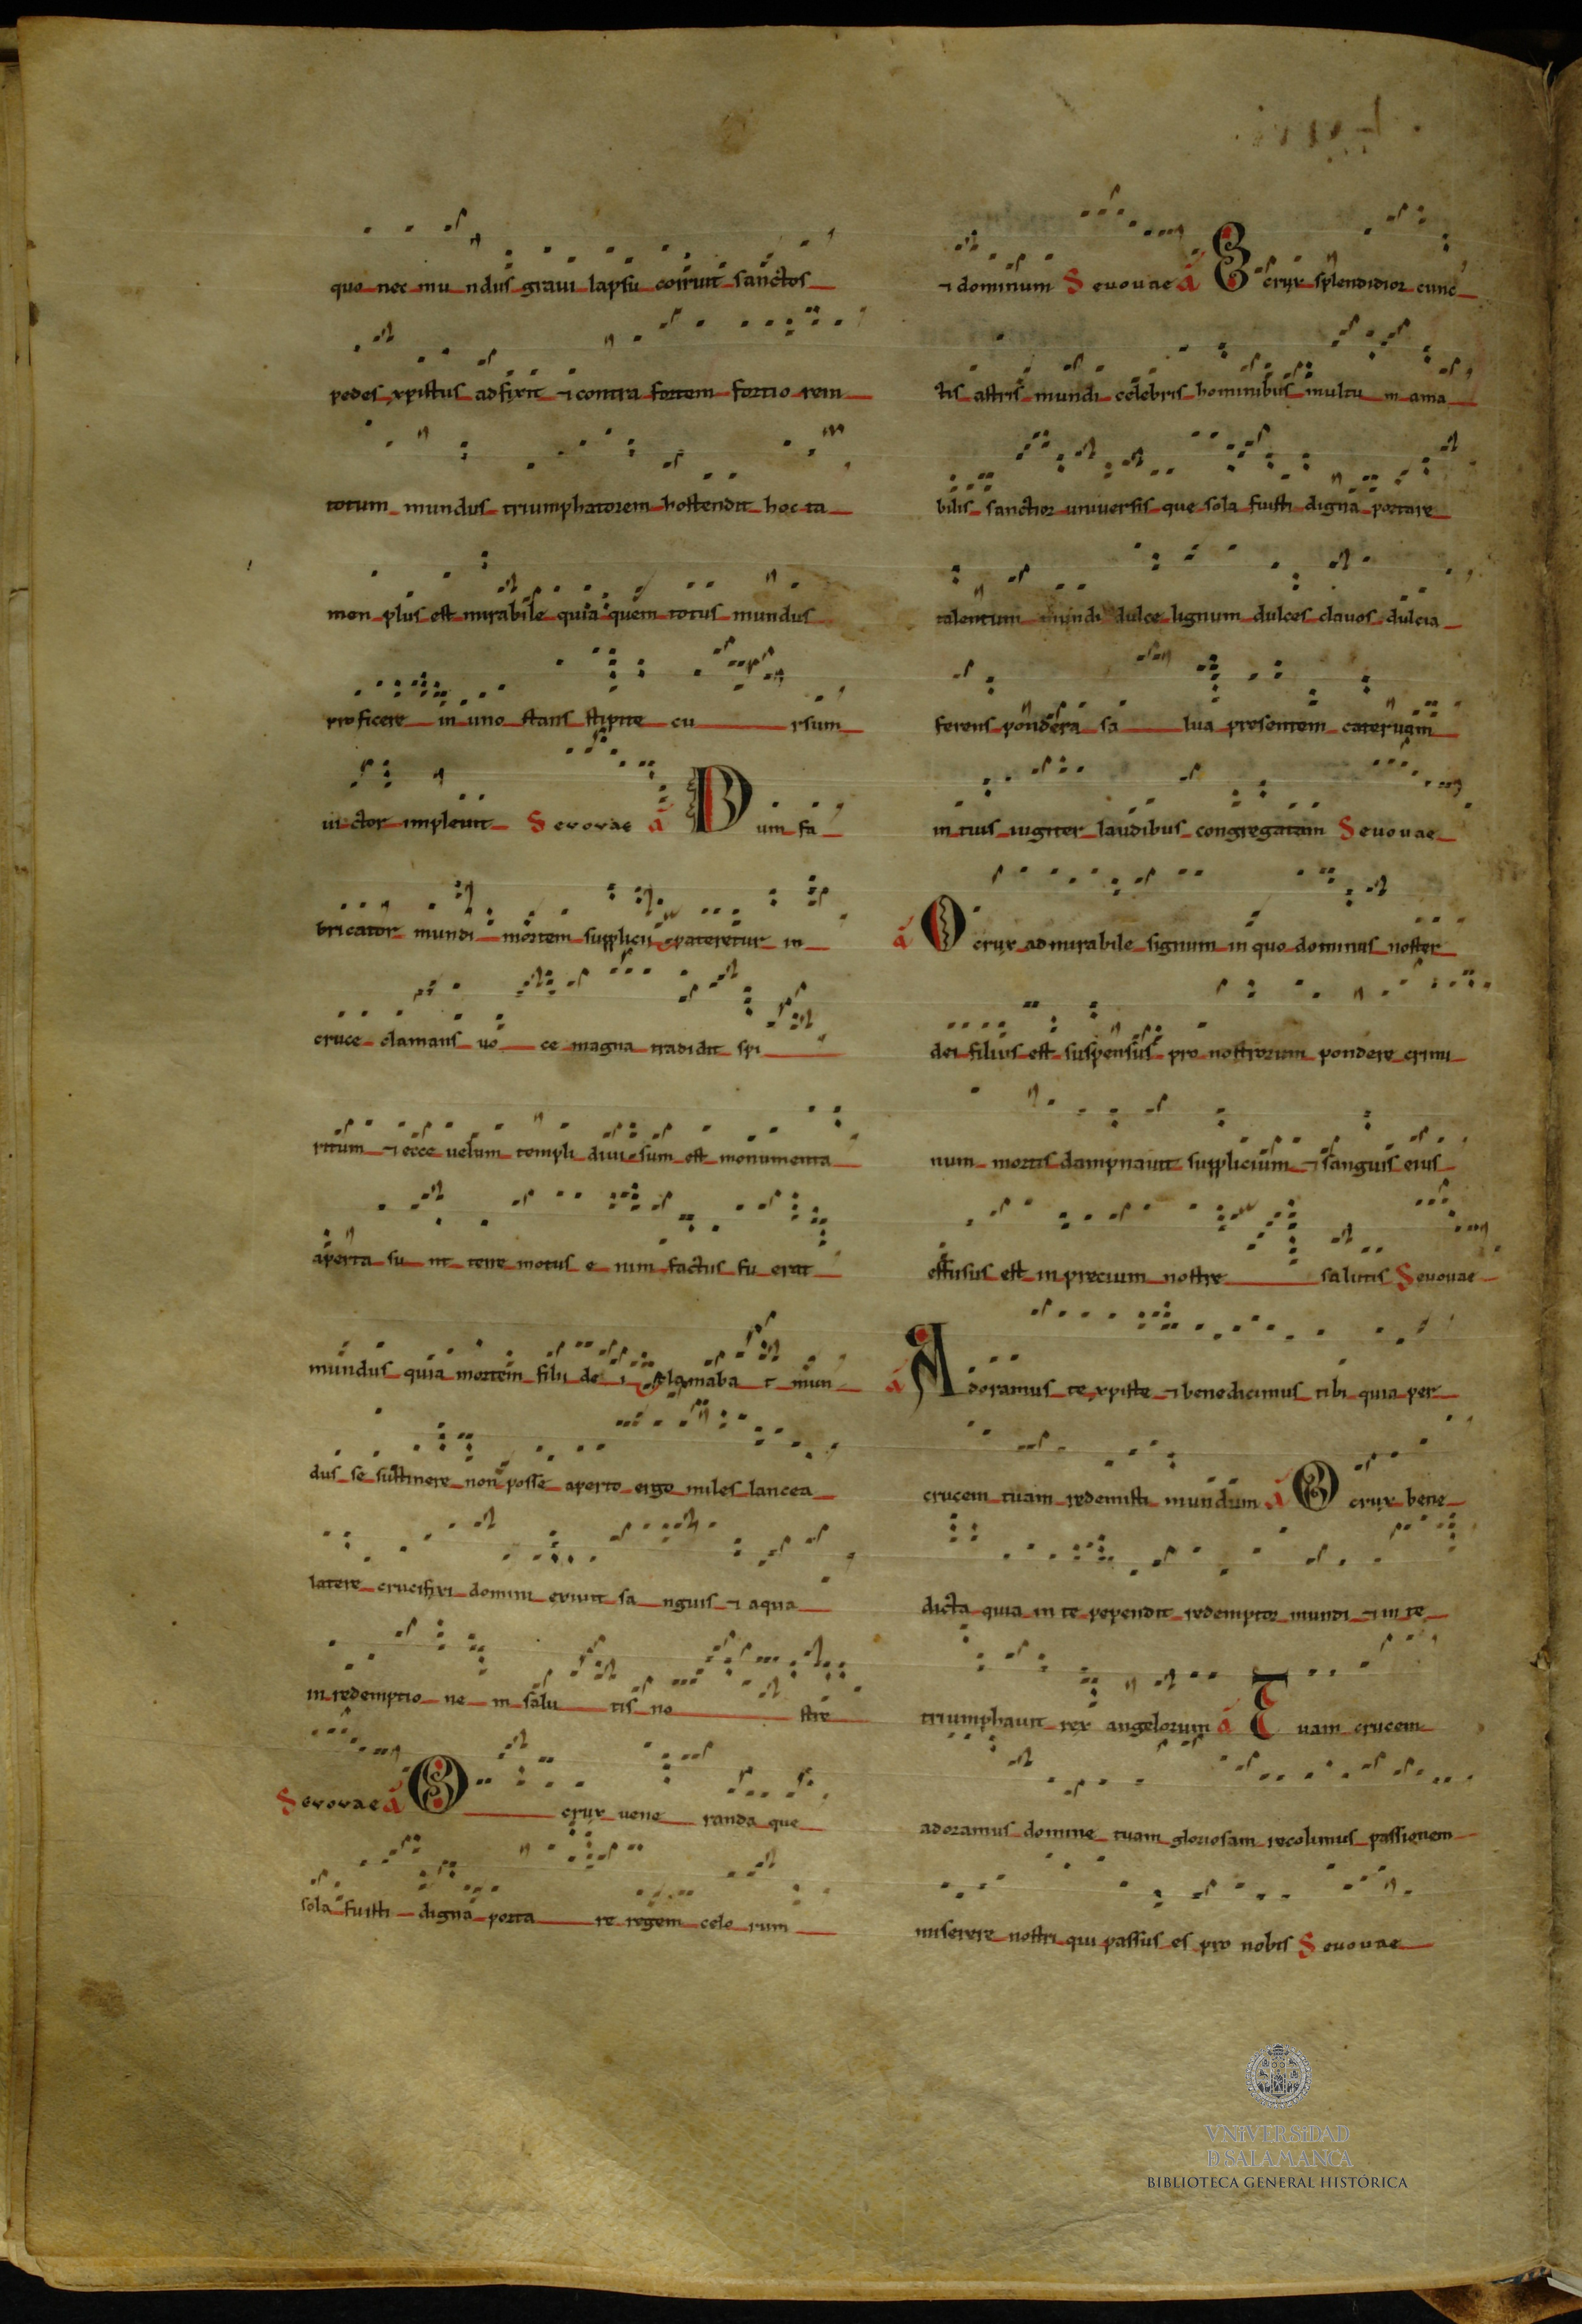 quo nec mu ndus graui lapsu coiruit sanctos
pedes xpistus adfixit ⁊ contra fortem fortio rem
totum mundus triumphatorem hostendit hoc ta
men plus est mirabile quia quem totus mundus
proficere in uno stans stipite cu rsum
uictor impleuit Seuouae á Dum fa
bricator mundi mortem supplicii pateretur in
cruce clamans uo ce magna tradidit spi
ritum ⁊ ecce uelum templi diuisum est monumenta
aperta su nt terre motus e nim factus fu erat
mundus quia mortem filii de i clamaba t mun
dus se sustinere non posse aperto ergo miles lancea
latere crucifixi domini exiuit sa nguis ⁊ aqua
in redemptio ne m salu tis no stre
Seuouae á O crux uene randa que
sola fuisti digna porta re regem celo rum
⁊ dominum Seuouae á O crux splendidior cunc
tis astris mundi celebris hominibus multu m ama
bilis sanctior uniuersis que sola fuisti digna portare
talentum mundi dulce lignum dulces clauos dulcia
ferens pondera sa lua presentem cateruam
in tuis iugiter laudibus congregatam Seuouae
á O crux admirabile signum in quo dominus noster
dei filius est suspensus pro nostrorum pondere crimi
num mortis dampnauit supplicium ⁊ sanguis eius
effusus est in precium nostre salutis Seuouae
á Adoramus te xpiste ⁊ benedicimus tibi quia per
crucem tuam redemisti mundum á O crux bene
dicta quia in te pependit redemptor mundi ⁊ in te
triumphauit rex angelorum á Tuam crucem
adoramus domine tuam gloriosam recolimus passionem
miserere nostri qui passus es pro nobis Seuouae
VNIVERSIDAD
D SALAMANCA
BIBLIOTECA GENERAL HISTÓRICA